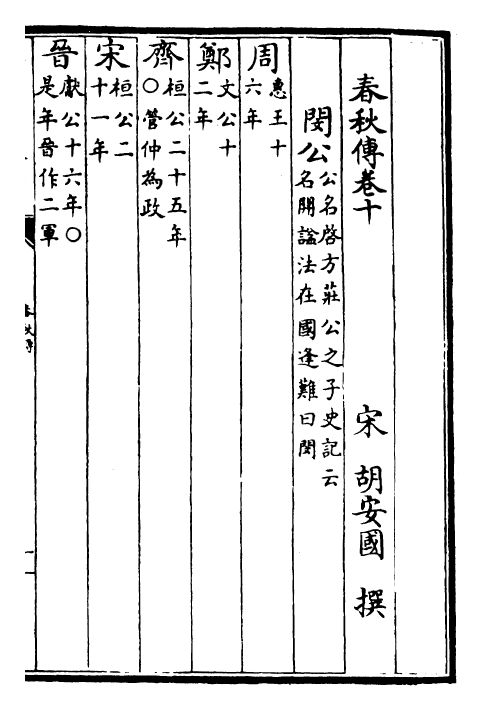 春秋傳卷十
宋 胡安國 撰
閔公公名啓方莊公之子史記云名開諡法在國逢難曰閔
周惠王十六年
鄭文公十二年
齊桓公二十五年○管仲為政
宋桓公二十一年
晉獻公十六年○是年晉作二軍